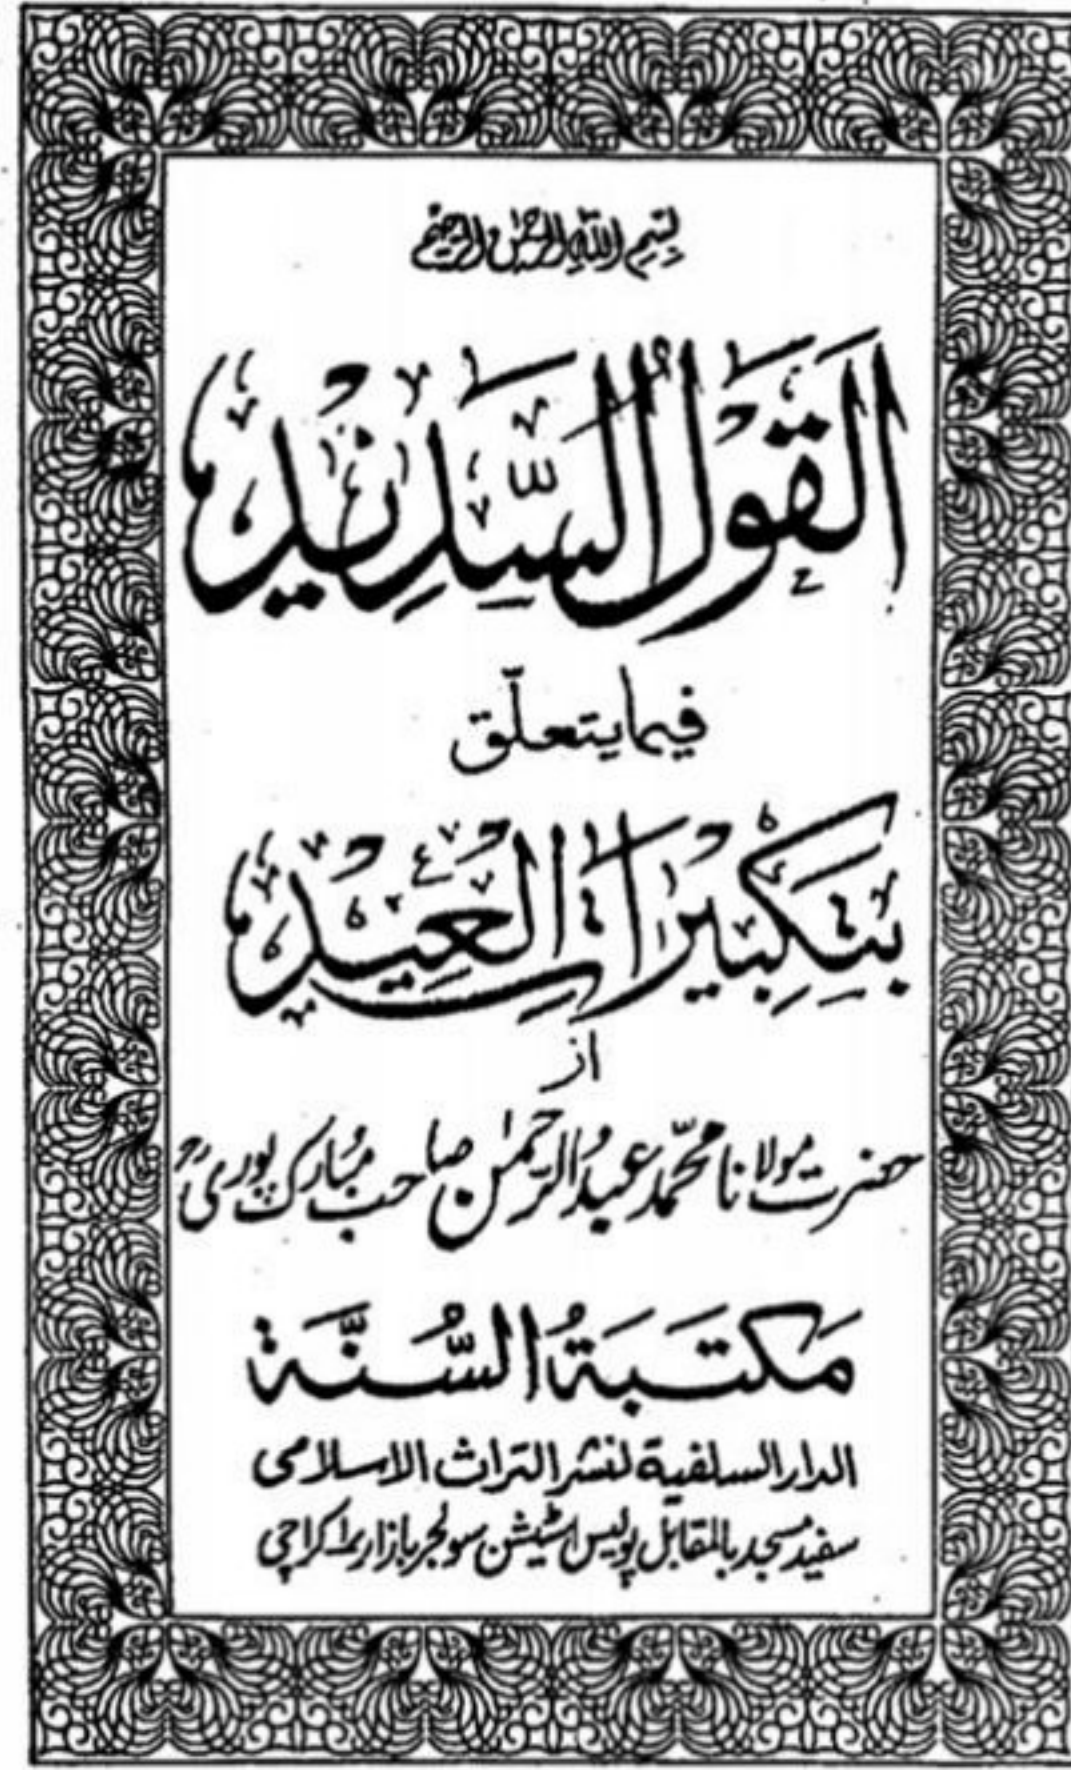 بِسْمِ اللهِ الرَّحْمٰنِ الرَّحِيْمِ
اَلْقَوْلُ السَّدِيْدُ
فيما يتعلّق
بِتَكْبِيْرَاتِ الْعِيْدِ
از
حضرت مولانا محمّد عبدُالرّحمٰن صاحب مُبارک پوریؒ
مَكتَبَةُ السُّنَّة
الدار السلفية لنشر التراث الاسلامى
سفید مسجد بالمقابل پولیس اسٹیشن سولجر بازار کراچی